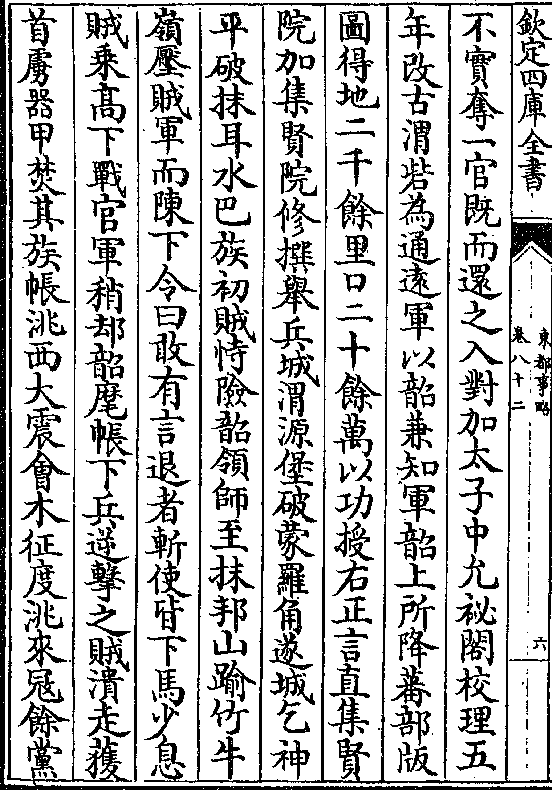 欽定四庫全書
東都事略
卷八十二
六
不實奪一官既而還之入對加太子中允祕閣校理五
年改古渭砦為通遠軍以韶兼知軍韶上所降蕃部版
圖得地二千餘里口二十餘萬以功授右正言直集賢
院加集賢院修撰舉兵城渭源堡破蒙羅角遂城乞神
平破抹耳水巴族初賊恃險韶領師至抹邦山踰竹牛
嶺壓賊軍而陳下令曰敢有言退者斬使皆下馬少息
賊乗髙下戰官軍稍却韶麾帳下兵逆擊之賊潰走獲
首虜器甲焚其族帳洮西大震㑹木征度洮來冦餘黨